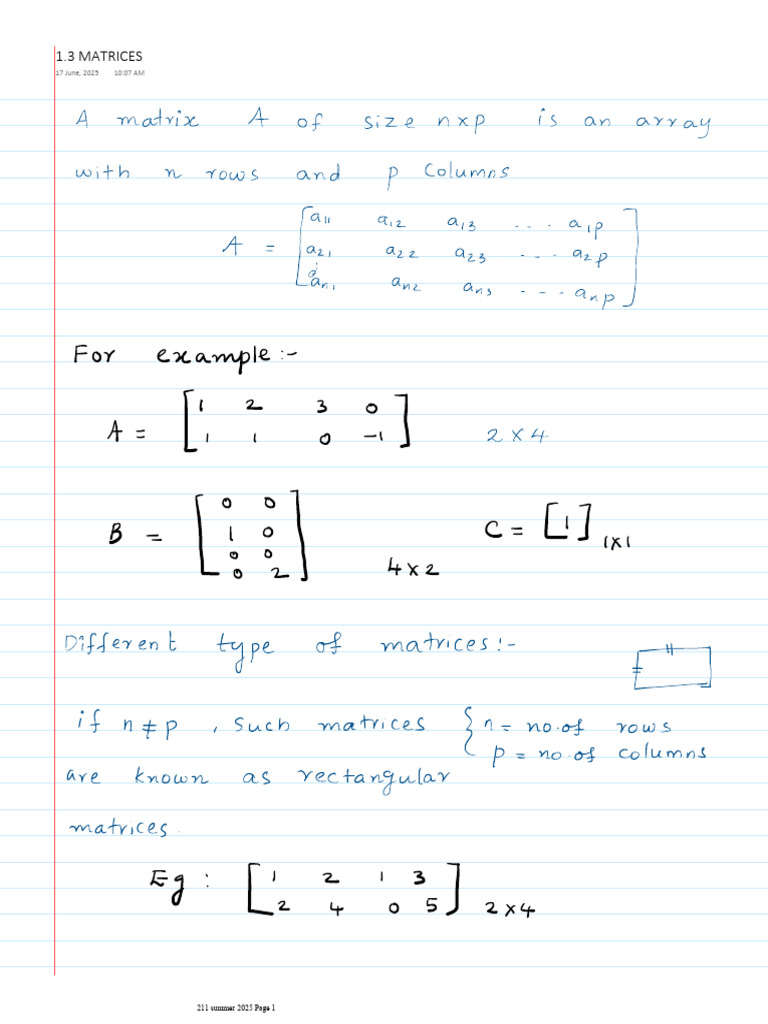 1.3 MATRICES
17 June, 2025 10:07 AM
A matrix A of size n×p is an array
with n rows and p columns
A = [a11 a12 a13 ... a1p
a21 a22 a23 ... a2p
⋮
an1 an2 an3 ... anp]
For example:-
A = [1 2 3 0
1 1 0 -1] 2×4
B = [0 0
1 0
0 0
0 2] 4×2
C = [1] 1×1
Different type of matrices:-
if n≠p, such matrices { n = no. of rows
p = no. of columns
are known as rectangular
matrices.
Eg : [1 2 1 3
2 4 0 5] 2×4
211 summer 2025 Page 1